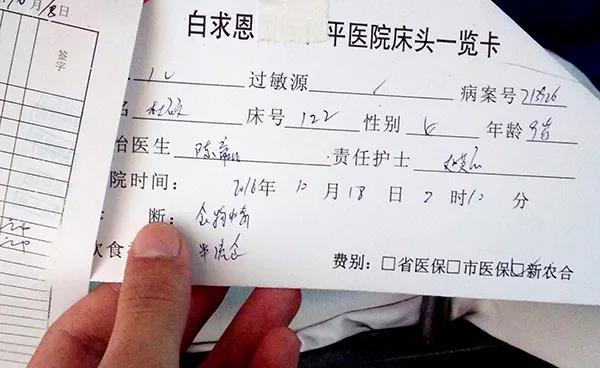 月18日
签字
白求恩 平医院床头一览卡
过敏源 / 病案号
名 床号 122 性别 女 年龄 9岁
治医生 陈 责任护士
院时间: 2016年 10月 18日 2时10分
断: 食物中毒
饮食 半流食
费别: □省医保□市医保☑新农合